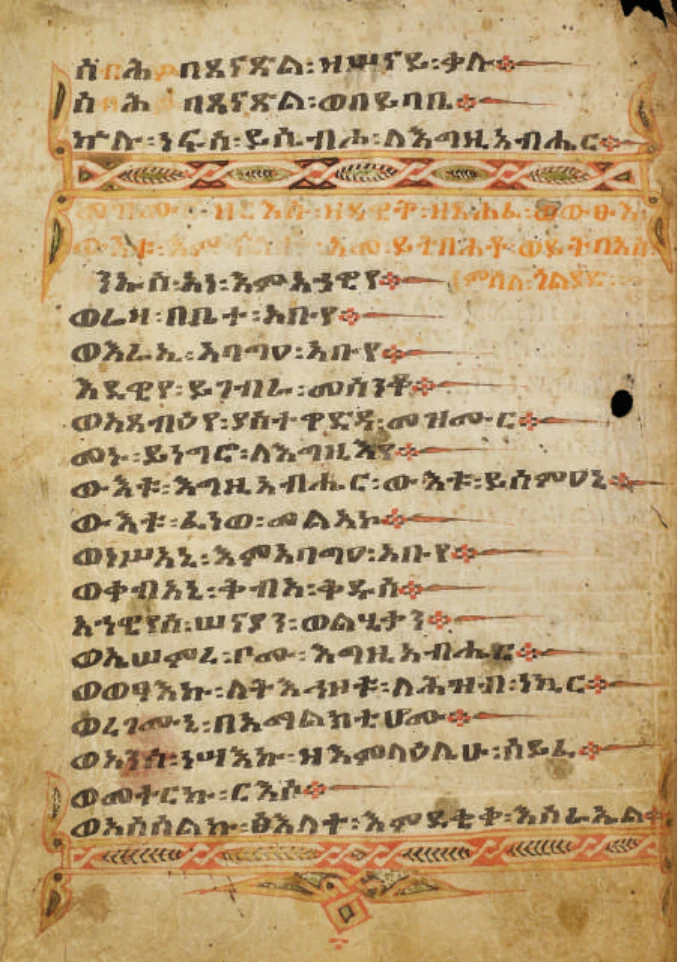 ሰብሕዎ በጸናጽል፡ዘሠናይ፡ቃሉ
ሰብሕዎ በጸናጽል፡ወበይባቤ
ኵሉ፡ነፍስ፡ይሴብሖ፡ለእግዚአብሔር
ንኡስ፡አነ፡እምአኀዊየ
ወሬዛ፡በቤተ፡አቡየ
ወእሬኢ፡አባግዐ፡አቡየ
እደዊየ፡ይገብራ፡መሰንቆ
ወአጻብዕየ፡ያስተዋድዳ፡መዝሙር
መኑ፡ይነግሮ፡ለእግዚእየ
ውእቱ፡እግዚአብሔር፡ውእቱ፡ይሰምዐኒ
ውእቱ፡ፈነወ፡መልአኮ
ወነሥአኒ፡እምአባግዐ፡አቡየ
ወቀብአኒ፡ቅብአ፡ቅዱስ
አኀዊየሰ፡ሠናያን፡ወልሂቃን
ወኢሠምረ፡ቦሙ፡እግዚአብሔር
ወወፃእኩ፡ለትእኀዞቱ፡ለሕዝብ፡ነኪር
ወረገሙኒ፡በአማልክቲሆሙ
ወአንሰ፡ነሣእኩ፡ዘእምላዕሌሁ፡ሰይፈ
ወመተርኩ፡ርእሶ
ወአሰሰልኩ፡ፅእለተ፡እምደቂቀ፡እስራኤል